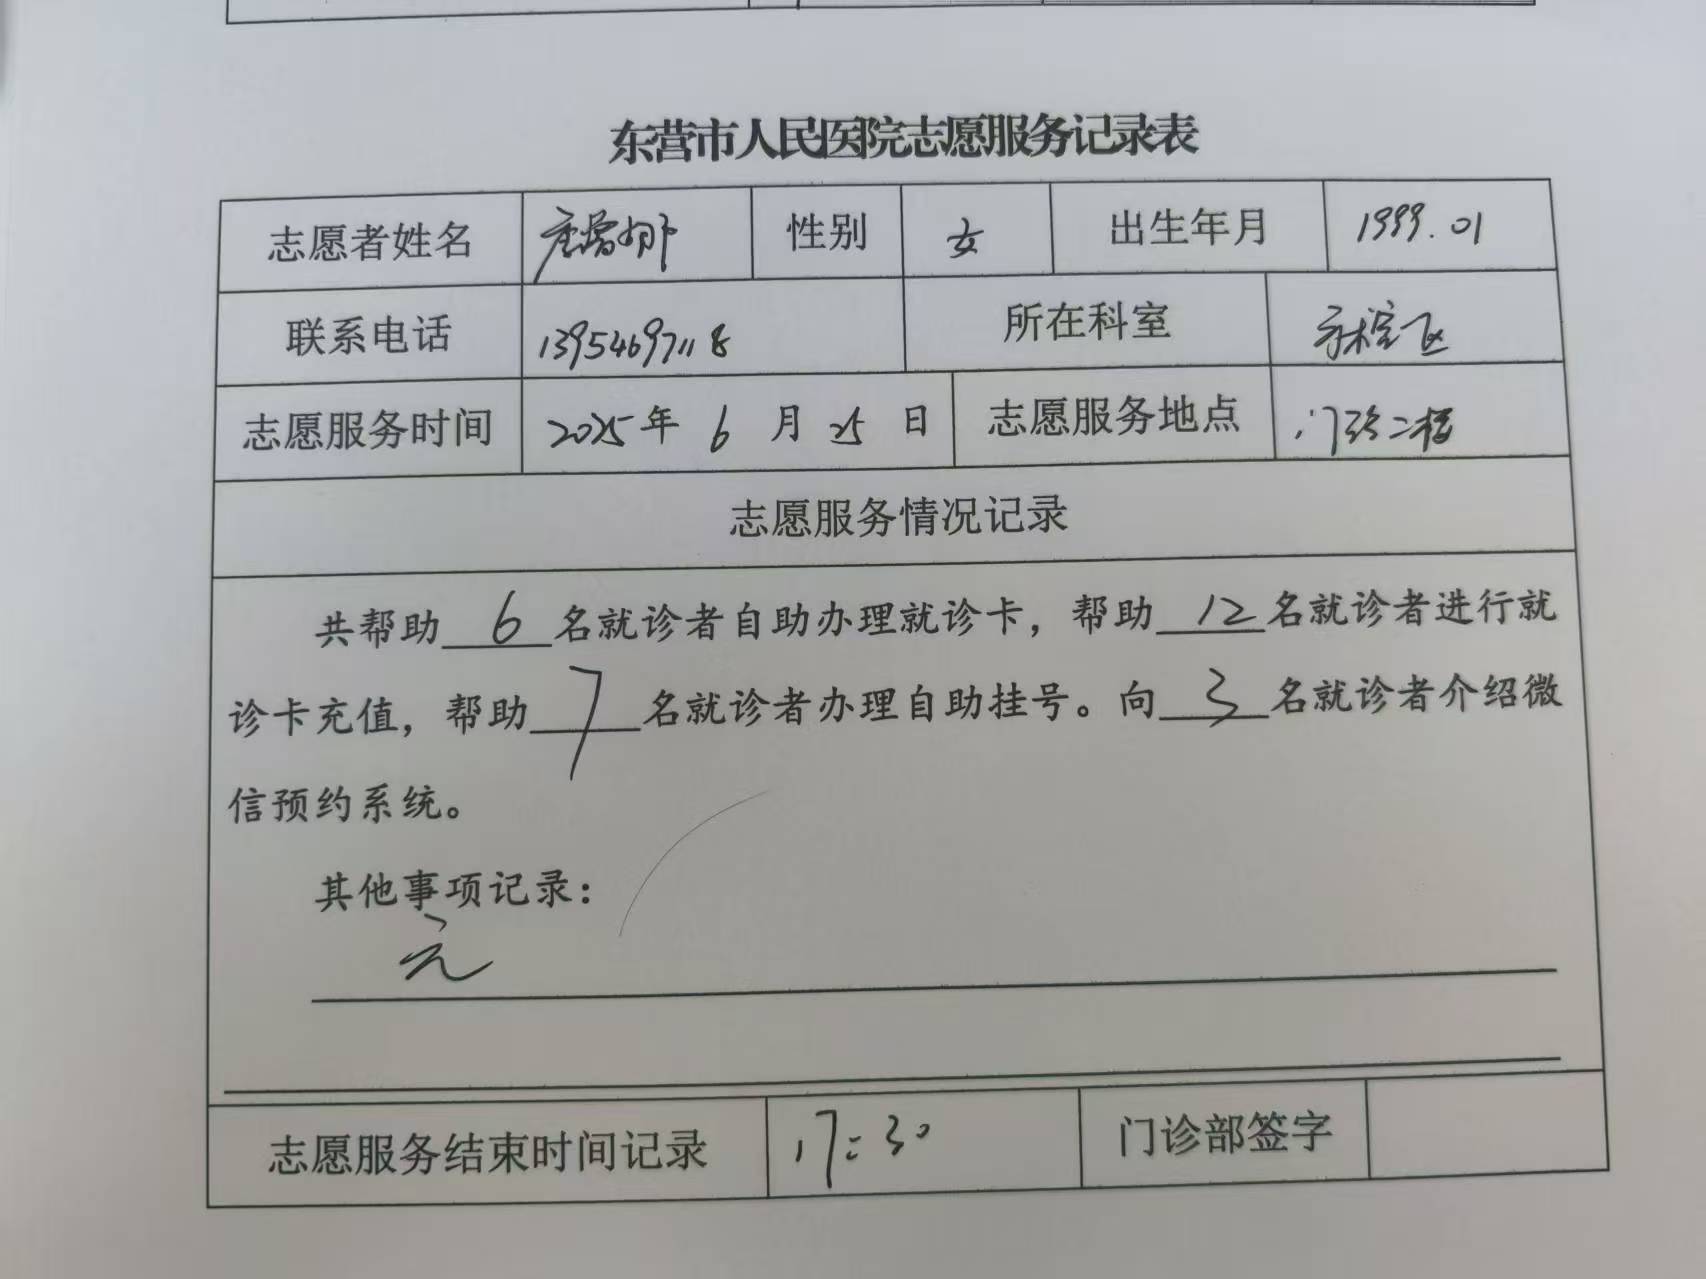 东营市人民医院志愿服务记录表
志愿者姓名 性别 女 出生年月 1999.01
联系电话 13954697118 所在科室
志愿服务时间 2025年 6 月 25 日 志愿服务地点 门诊二楼
志愿服务情况记录
共帮助 6 名就诊者自助办理就诊卡，帮助 12 名就诊者进行就
诊卡充值，帮助 7 名就诊者办理自助挂号。向 3 名就诊者介绍微
信预约系统。
其他事项记录：
无
志愿服务结束时间记录 17:30 门诊部签字